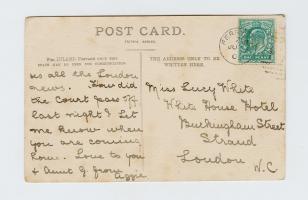 POST CARD.
FOR INLAND POSTAGE ONLY THIS
SPACE MAY BE USED FOR COMMUNICATION
THE ADDRESS ONLY TO BE
WRITTEN HERE.
us all the London
news. How did
the Court pass off
last night? Let
me know where
you are coming
home. Love to you
& Aunt G from
Aggie
Miss Lucy White
White House Hotel
Buckingham Street
Strand
London
W.C